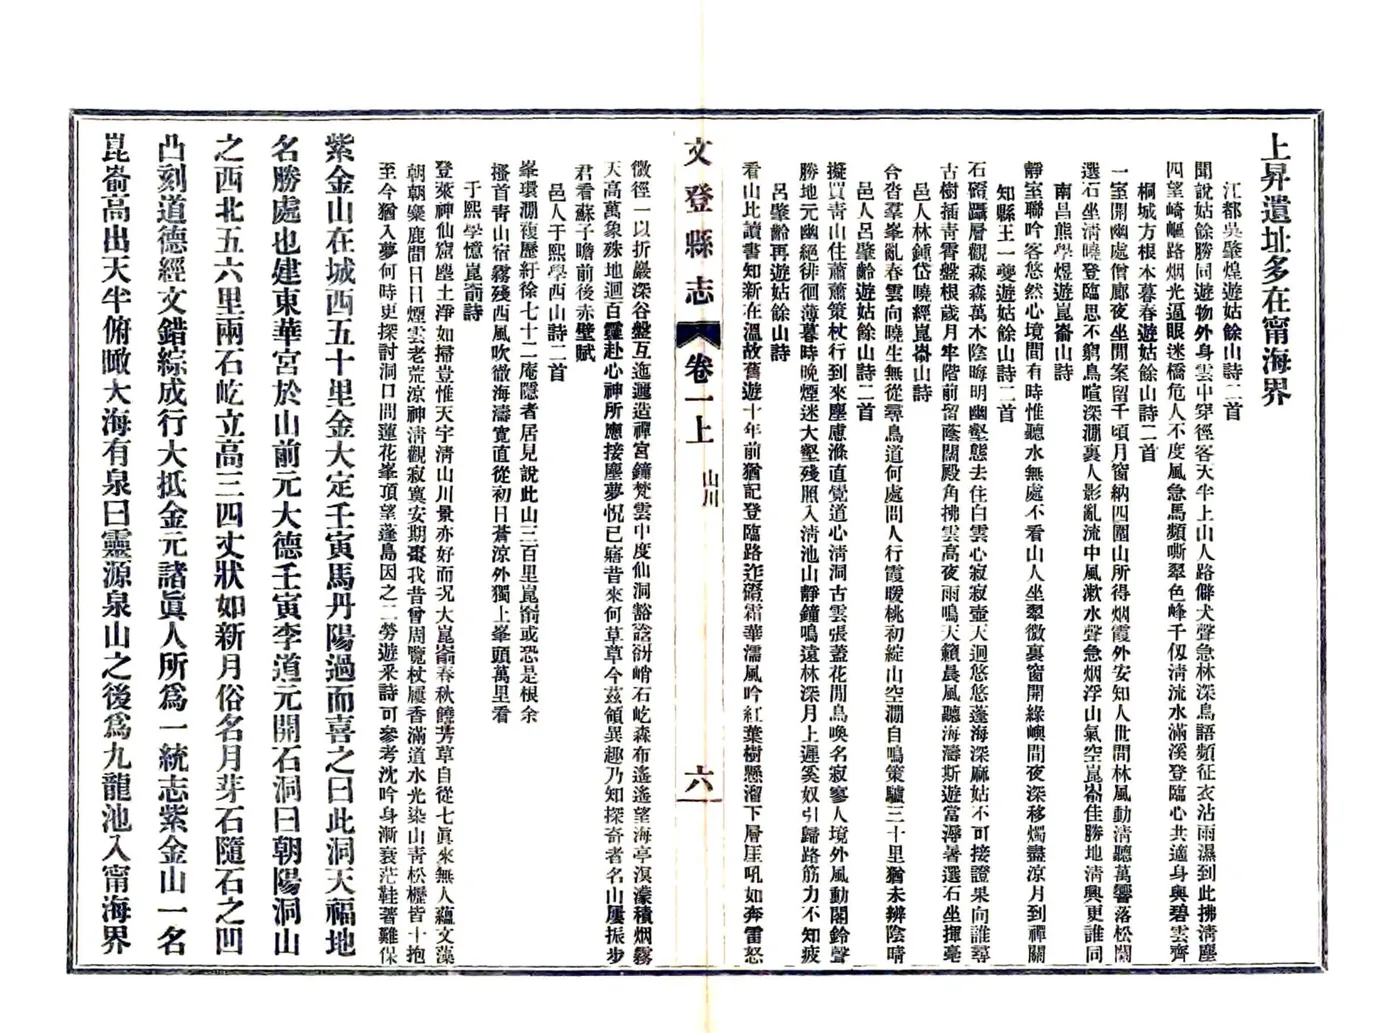 上昇遺址多在甯海界
江都吳肇煌遊姑餘山詩二首
聞說姑餘勝同遊物外身雲中穿徑客天半上山人路僻犬聲急林深鳥語頻征衣沾雨濕到此拂清塵
四望崎嶇路烟光逼眼迷橋危人不度風急馬頻嘶翠色峰千仭清流水滿溪登臨心共適身與碧雲齊
桐城方根本暮春遊姑餘山詩二首
一室開幽處僧廊夜坐閒案留千頃月窗納四圍山所得烟霞外安知人世間林風動清聽萬響落松關
選石坐清曉登臨思不窮鳥喧深澗裏人影亂流中風漱水聲急烟浮山氣空崑崳佳勝地清興更誰同
南昌熊學煜遊崑崳山詩
靜室聯吟客悠然心境間有時惟聽水無處不看山人坐翠微裏窗開綠嶼間夜深移燭盡涼月到禪關
知縣王一夔遊姑餘山詩二首
石磴躡層觀森森萬木陰晦明幽壑態去住白雲心寂寂壺天迥悠悠蓬海深麻姑不可接證果向誰尋
古樹插靑霄盤根歲月牢階前留蔭闊殿角拂雲高夜雨鳴天籟晨風聽海濤斯遊當溽暑選石坐揮毫
邑人林鍾岱曉經崑崳山詩
合沓羣峯亂春雲向曉生無從尋鳥道何處問人行霞暖桃初綻山空澗自鳴策驢三十里猶未辨陰晴
邑人呂肇齡遊姑餘山詩二首
擬買靑山住蕭蕭策杖行到來塵慮滌直覺道心淸洞古雲張蓋花閒鳥喚名寂寥人境外風動閣鈴聲
勝地元幽絕徘徊薄暮時晚煙迷大壑殘照入清池山靜鐘鳴遠林深月上遲奚奴引歸路筋力不知疲
呂肇齡再遊姑餘山詩
看山比讀書知新在溫故舊遊十年前猶記登臨路迮磴霜華濡風吟紅葉樹懸溜下層厓吼如奔雷怒
文登縣志
卷一上
山川
六
微徑一以折巖深谷盤互迤邐造禪宮鐘梵雲中度仙洞豁谽谺峭石屹森布遙遙望海亭溟濛積烟霧
天高萬象殊地迥百靈赴心神所應接塵夢怳已寤昔來何草草今茲領異趣乃知探奇者名山屢振步
君看蘇子瞻前後赤壁賦
邑人于熙學西山詩二首
峯環澗複歷紆徐七十二庵隱者居見說此山三百里崑崳或恐是根余
搔首靑山宿霧殘西風吹徹海濤寬直從初日蒼涼外獨上峯頭萬里看
于熙學憶崑崳詩
登萊神仙窟塵土淨如掃豈惟天宇清山川景亦好而況大崑崳春秋饒芳草自從七眞來無人蘊文藻
朝朝麋鹿間日日煙雲老荒涼神清觀寂寞安期棗我昔曾周覽杖屨香滿道水光染山靑松櫪皆十抱
至今猶入夢何時更探討洞口問蓮花峯頂望蓬島因之二勞遊采詩可參考沈吟身漸衰茫鞋著難保
紫金山在城西五十里金大定壬寅馬丹陽過而喜之曰此洞天福地
名勝處也建東華宮於山前元大德壬寅李道元開石洞曰朝陽洞山
之西北五六里兩石屹立高三四丈狀如新月俗名月芽石隨石之凹
凸刻道德經文錯綜成行大抵金元諸眞人所爲一統志紫金山一名
崑崳高出天半俯瞰大海有泉曰靈源泉山之後爲九龍池入甯海界